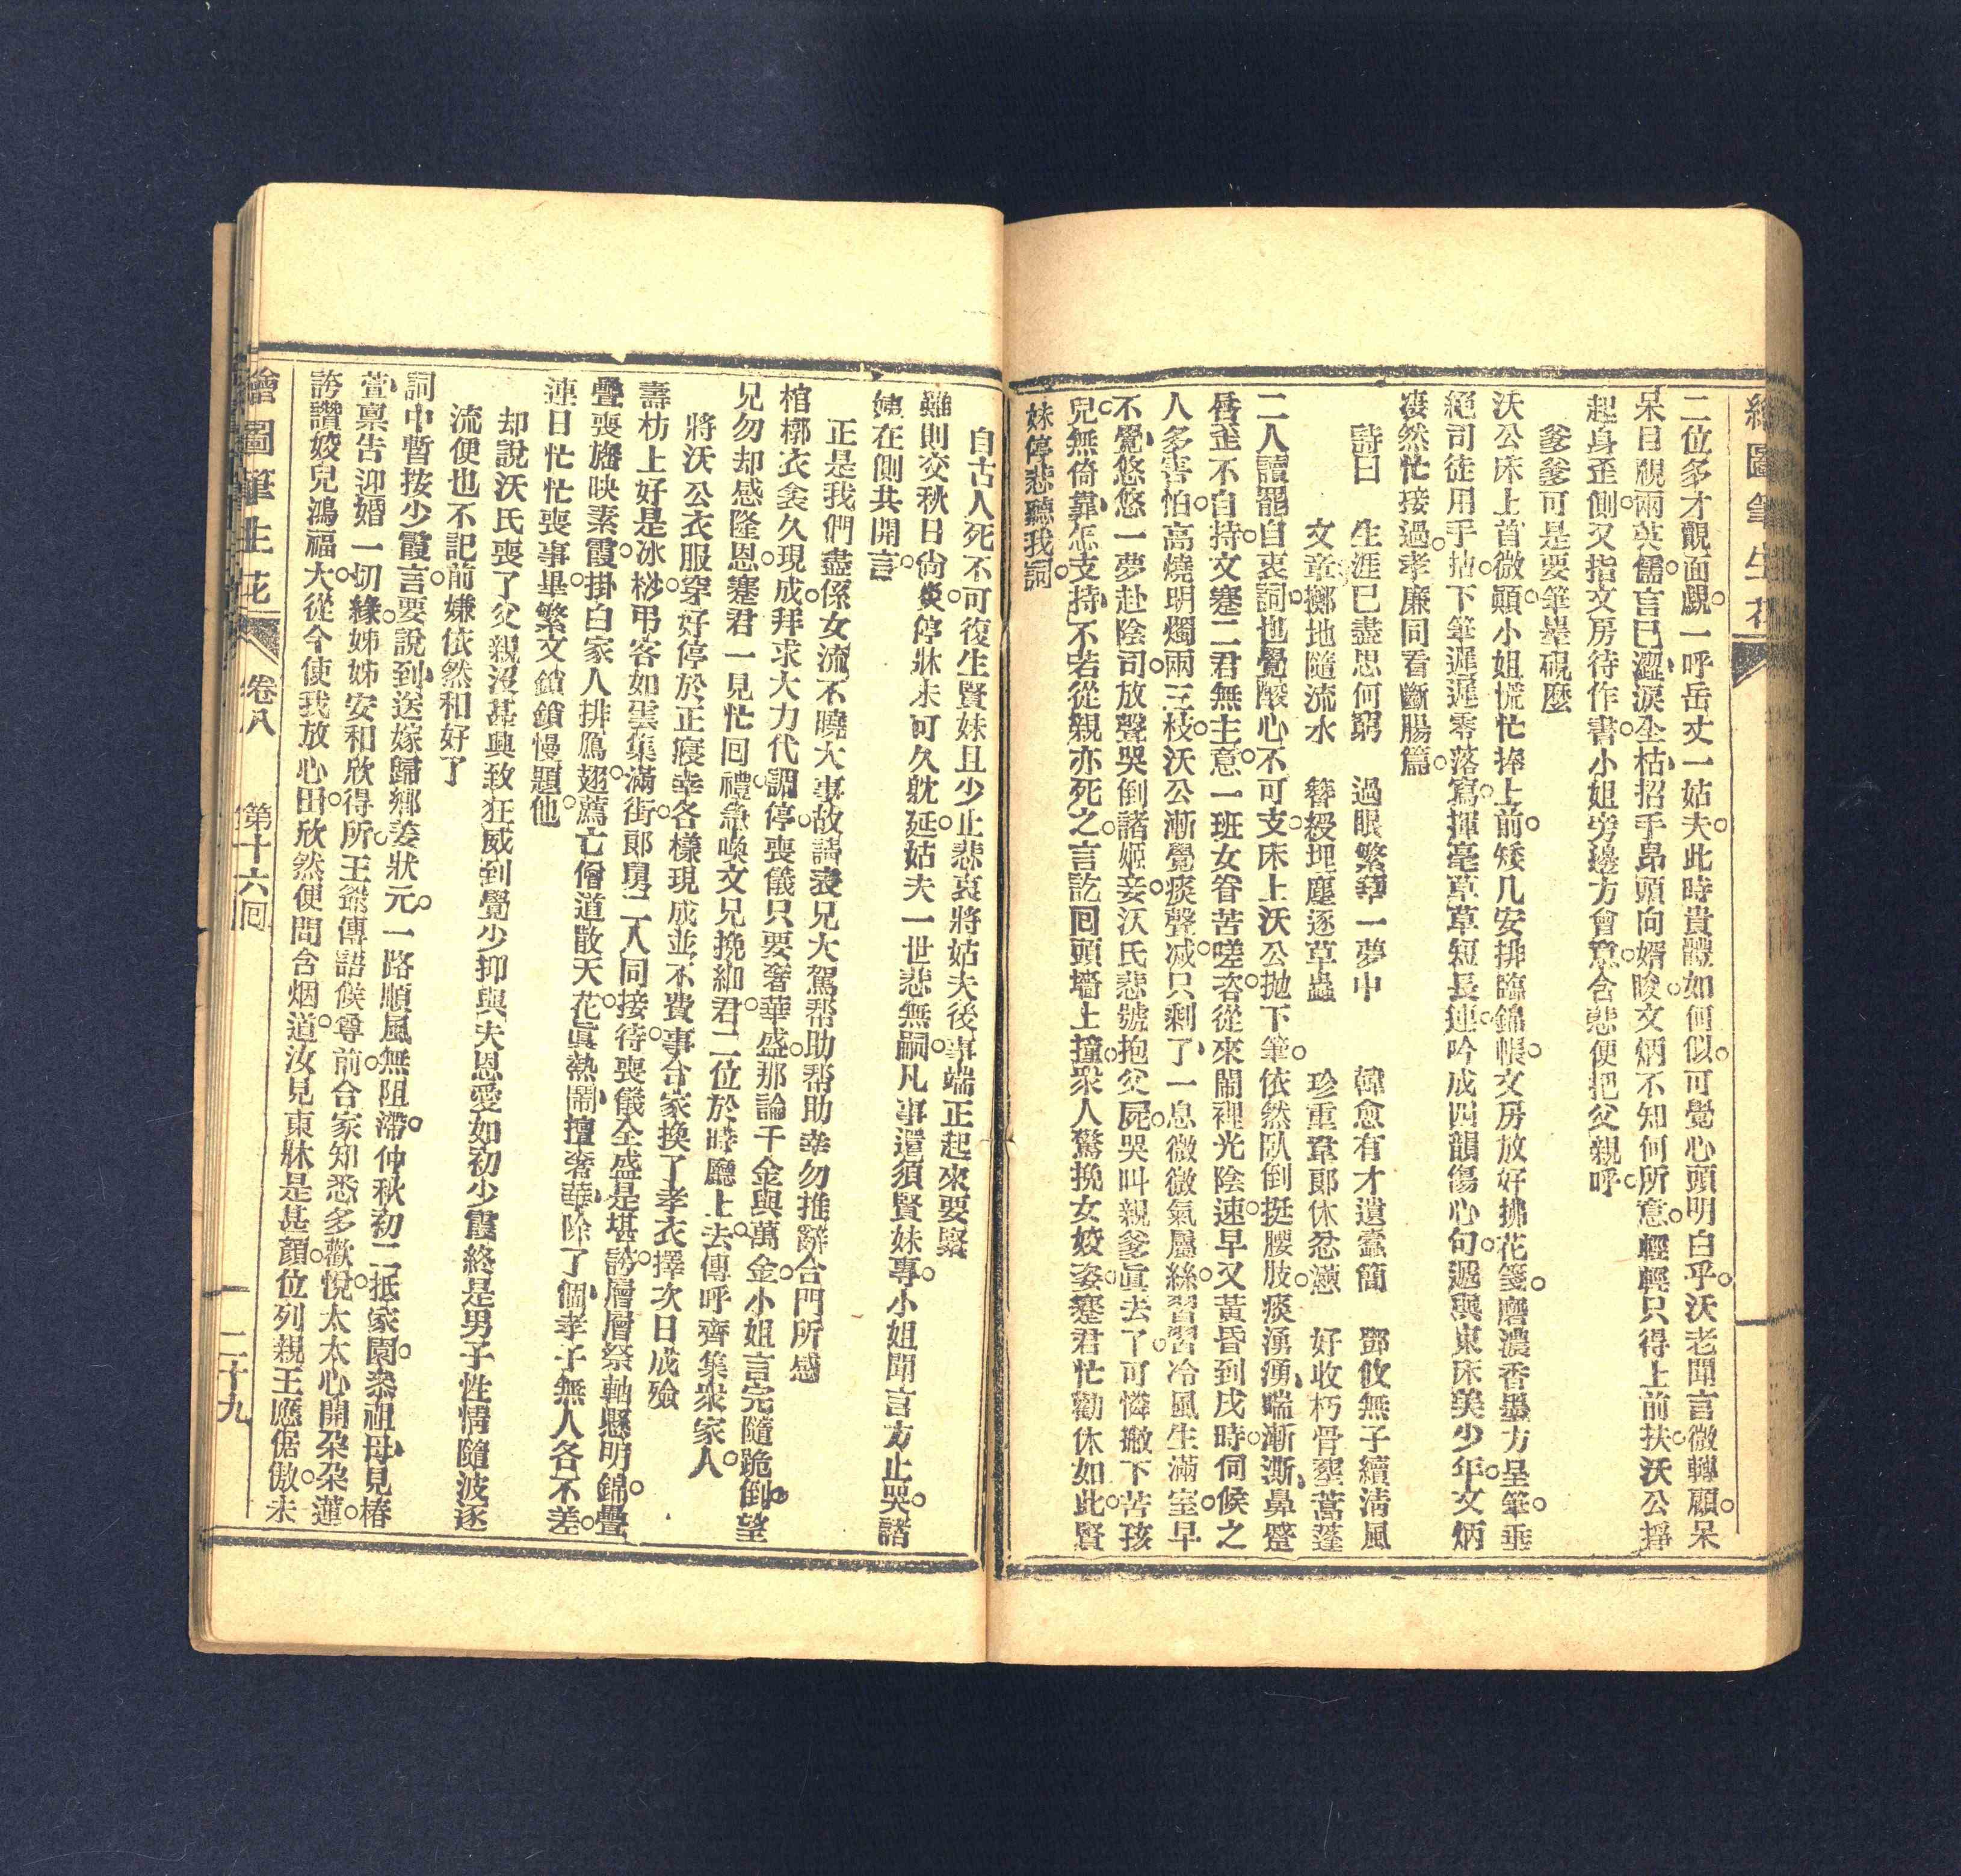 繪圖筆生花
二位多才覿面覷一呼岳丈一姑夫此時貴體如何似可覺心頭明白乎沃老聞言微轉顧呆
呆目覩兩英儒言已澀淚坐枯招手昂頭向婿睃文炳不知何所意輕輕只得上前扶沃公掙
起身歪側又指文房待作書小姐旁邊方會意含悲便把父親呼
爹爹可是要筆墨硯麼
沃公床上首微顚小姐慌忙捧上前矮几安排臨錦帳文房放好拂花箋磨濃香墨方呈筆垂
絕司徒用手拈下筆遲遲零落寫揮毫草草短長連吟成四韻傷心句遞與東床美少年文炳
凄然忙接過孝廉同看斷腸篇
詩曰　生涯已盡思何窮　過眼繁華一夢中　韓愈有才遺蠹簡　鄧攸無子續清風
文章擲地隨流水　簪綬埋塵逐草蟲　珍重韋郎休忿懣　好收朽骨瘞蒿蓬
二人讀罷自哀詞也覺酸心不可支床上沃公拋下筆依然臥倒挺腰肢痰湧湧喘漸漸鼻蹙
唇歪不自持文蹇二君無主意一班女眷苦嗟咨從來閙裡光陰速早又黃昏到戌時伺候之
人多害怕高燒明燭兩三枝沃公漸覺痰聲减只剩了一息微微氣屬絲習習冷風生滿室早
不覺悠悠一夢赴陰司放聲哭倒諸姬妾沃氏悲號抱父屍哭叫親爹眞去了可憐撇下苦孩
兒無倚靠怎支持不若從親亦死之言訖回頭墻上撞衆人驚挽女姣姿蹇君忙勸休如此賢
妹停悲聽我詞
自古人死不可復生賢妹且少止悲哀將姑夫後事端正起來要緊
雖則交秋日尙炎停牀未可久躭延姑夫一世悲無嗣凡事還須賢妹專小姐聞言方止哭諸
姨在側共開言
正是我們盡係女流不曉大事故請表兄大駕帮助帮助幸勿推辭合門所感
棺槨衣衾久現成拜求大力代調停喪儀只要奢華盛那論千金與萬金小姐言完隨跪倒望
兄勿却感隆恩蹇君一見忙回禮急喚文兄挽細君二位於時廳上去傳呼齊集衆家人
將沃公衣服穿好停於正寢幸各樣現成並不費事合家換了孝衣擇次日成殮
壽枋上好是冰桫弔客如雲集滿街郎舅二人同接待喪儀全盛是堪誇層層祭軸懸明錦疊
疊喪旛映素霞掛白家人排鴈翅薦亡僧道散天花眞熱閙擅奢華除了個孝子無人各不差
連日忙忙喪事畢繁文鎖鎖慢題他
却說沃氏喪了父親沒甚興致狂威到覺少抑與夫恩愛如初少霞終是男子性情隨波逐
流便也不記前嫌依然和好了
詞中暫按少霞言要說到送嫁歸鄉姜狀元一路順風無阻滯仲秋初二抵家園叅祖母見椿
萱稟告迎婚一切緣姊姊安和欣得所王爺傳語候尊前合家知悉多歡悅太太心開朶朶蓮
誇讚姣兒鴻福大從今使我放心田欣然便問含烟道汝見東牀是甚顏位列親王應倨傲未
繪圖筆生花　卷八　第十六回　二十九